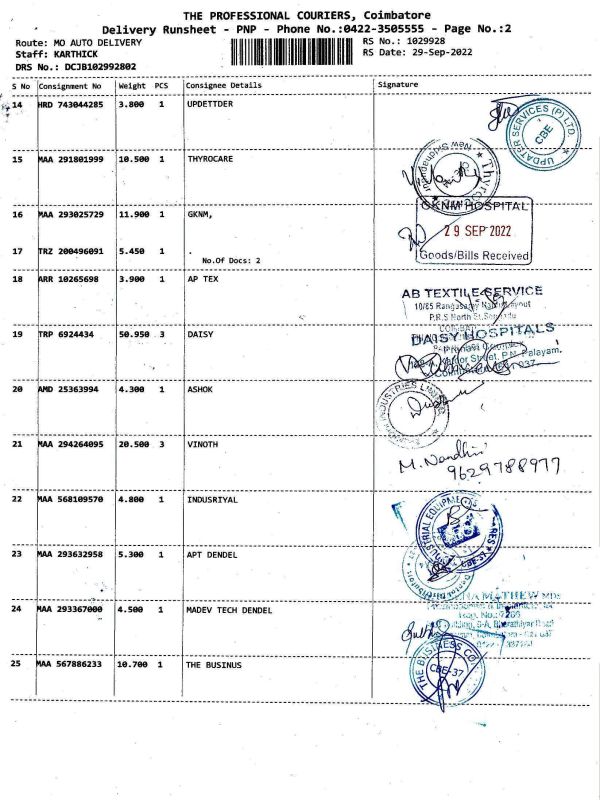 THE PROFESSIONAL COURIERS, Coimbatore
Delivery Runsheet - PNP - Phone No.:0422-3505555 - Page No.:2
Route: MO AUTO DELIVERY
RS No.: 1029928
Staff: KARTHICK
RS Date: 29-Sep-2022
DRS No.: DCJB102992802
S No Consignment No Weight PCS Consignee Details Signature
14 HRD 743044285 3.800 1 UPDETTDER
UPDATER SERVICES (P) LTD
CBE
15 MAA 291801999 10.500 1 THYROCARE
16 MAA 293025729 11.900 1 GKNM,
GKNM HOSPITAL
29 SEP 2022
Goods/Bills Received
17 TRZ 200496091 5.450 1 .
No.Of Docs: 2
18 ARR 10265698 3.900 1 AP TEX
AB TEXTILE SERVICE
19 TRP 6924434 50.950 3 DAISY
DAISY HOSPITALS
20 AMD 25363994 4.300 1 ASHOK
21 MAA 294264095 20.500 3 VINOTH
M. Nandhini
9629788977
22 MAA 568109570 4.800 1 INDUSRIYAL
23 MAA 293632958 5.300 1 APT DENDEL
24 MAA 293367000 4.500 1 MADEV TECH DENDEL
25 MAA 567886233 10.700 1 THE BUSINUS
THE BUSINESS CO.
CBE-37